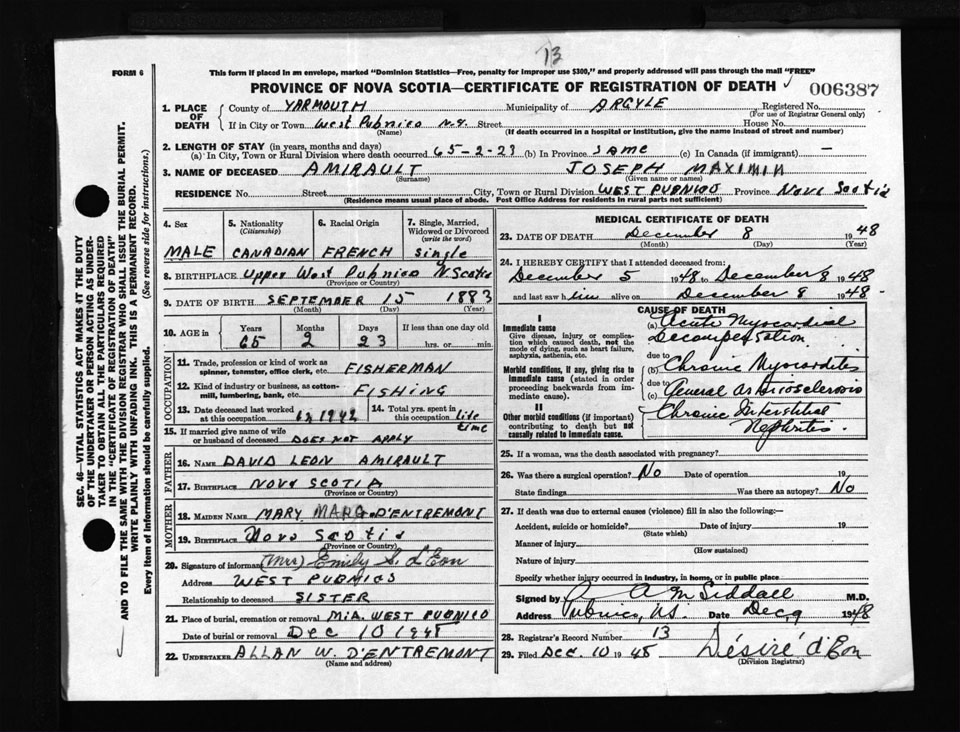 13
FORM 6
This form if placed in an envelope, marked "Dominion Statistics—Free, penalty for improper use $300," and properly addressed will pass through the mail "FREE"
PROVINCE OF NOVA SCOTIA—CERTIFICATE OF REGISTRATION OF DEATH
006387
SEC. 46—VITAL STATISTICS ACT MAKES IT THE DUTY
OF THE UNDERTAKER OR PERSON ACTING AS UNDER-
TAKER TO OBTAIN ALL THE PARTICULARS REQUIRED
IN THE "CERTIFICATE OF REGISTRATION OF DEATH"
AND TO FILE THE SAME WITH THE DIVISION REGISTRAR WHO SHALL ISSUE THE BURIAL PERMIT.
WRITE PLAINLY WITH UNFADING INK. THIS IS A PERMANENT RECORD.
Every item of information should be carefully supplied. (See reverse side for instructions.)
1. PLACE OF DEATH
County of YARMOUTH Municipality of ARGYLE Registered No.
(For use of Registrar General only)
If in City or Town West Pubnico N.S. Street House No.
(Name) (If death occurred in a hospital or institution, give the name instead of street and number)
2. LENGTH OF STAY (in years, months and days)
(a) In City, Town or Rural Division where death occurred 65-2-23 (b) In Province same (c) In Canada (if immigrant) —
3. NAME OF DECEASED AMIRAULT JOSEPH MAXIMIN
(Surname) (Given name or names)
RESIDENCE No. Street City, Town or Rural Division WEST PUBNICO Province Nova Scotia
(Residence means usual place of abode. Post Office Address for residents in rural parts not sufficient)
4. Sex
MALE
5. Nationality
(Citizenship)
CANADIAN
6. Racial Origin
FRENCH
7. Single, Married,
Widowed or Divorced
(write the word)
Single
8. BIRTHPLACE Upper West Pubnico N Scotia
(Province or Country)
9. DATE OF BIRTH SEPTEMBER 15 1883
(Month) (Day) (Year)
10. AGE in Years Months Days If less than one day
65 2 23 hrs. or min.
11. Trade, profession or kind of work as
spinner, teamster, office clerk, etc. FISHERMAN
12. Kind of industry or business, as cotton-
mill, lumbering, bank, etc. FISHING
13. Date deceased last worked
at this occupation 1942
14. Total yrs. spent in
this occupation life time
15. If married give name of wife
or husband of deceased DOES NOT APPLY
FATHER
16. NAME DAVID LEON AMIRAULT
17. BIRTHPLACE NOVA SCOTIA
(Province or Country)
MOTHER
18. MAIDEN NAME MARY MARG. D'ENTREMONT
19. BIRTHPLACE Nova Scotia
(Province or Country)
20. Signature of informant (Mrs) Emily S. d'Eon
Address WEST PUBNICO
Relationship to deceased SISTER
21. Place of burial, cremation or removal MIA. WEST PUBNICO
Date of burial or removal Dec 10 1948
22. UNDERTAKER ALLAN W. D'ENTREMONT
(Name and address)
MEDICAL CERTIFICATE OF DEATH
23. DATE OF DEATH December 8 1948
(Month) (Day) (Year)
24. I HEREBY CERTIFY that I attended deceased from:
December 5 1948 to December 8 1948
and last saw him alive on December 8 1948
CAUSE OF DEATH
I
Immediate cause
Give disease, injury or complica-
tion which caused death, not the
mode of dying, such as heart failure,
asphyxia, asthenia, etc.
(a) Acute Myocardial
Decompensation
due to
Morbid conditions, if any, giving rise to
immediate cause (stated in order
proceeding backwards from im-
mediate cause).
(b) Chronic Myocarditis
due to
(c) General Arteriosclerosis
II
Other morbid conditions (if important)
contributing to death but not
causally related to immediate cause.
Chronic Interstitial
Nephritis
25. If a woman, was the death associated with pregnancy?
26. Was there a surgical operation? No Date of operation 19
State findings Was there an autopsy? No
27. If death was due to external causes (violence) fill in also the following:—
Accident, suicide or homicide? Date of injury 19
(State which)
Manner of injury
(How sustained)
Nature of injury
Specify whether injury occurred in industry, in home, or in public place
Signed by A M Siddall M.D.
Address Pubnico, N.S. Date Dec. 9 1948
28. Registrar's Record Number 13
29. Filed Dec. 10 1948 Désiré d'Eon
(Division Registrar)